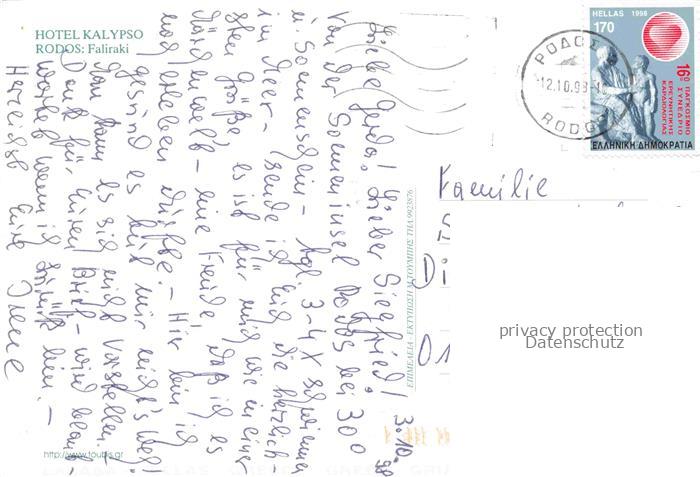 HOTEL KALYPSO
RODOS: Faliraki
3.10.98
Liebe Gerda! Lieber Siegfried!
Von der Sonneninsel Rodos bei 30°
u. Sonnenschein – tgl. 3–4 x schwimmen
im Meer sende ich Euch die herzlich-
sten Grüße, es ist für mich wie in einer
– eine Freude, daß ich es
noch erleben dürfte. – Hier bin ich
gesund es tut mir nichts weh!
Man kann es sich nicht vorstellen. –
Dank für Euren Brief – wird
wortet wenn ich zurück bin. –
Herzlichst Eure Irene
http://www.toubis.gr
ΕΠΙΜΕΛΕΙΑ - ΕΚΤΥΠΩΣΗ Μ. ΤΟΥΜΠΗΣ ΤΗΛ 9923876
HELLAS 1998
170
16ο ΠΑΓΚΟΣΜΙΟ
ΣΥΝΕΔΡΙΟ
ΕΡΕΥΝΗΤΙΚΗΣ
ΚΑΡΔΙΟΛΟΓΙΑΣ
ΕΛΛΗΝΙΚΗ ΔΗΜΟΚΡΑΤΙΑ
ΡΟΔΟΣ
12.10.98
RODOS
Familie
privacy protection
Datenschutz